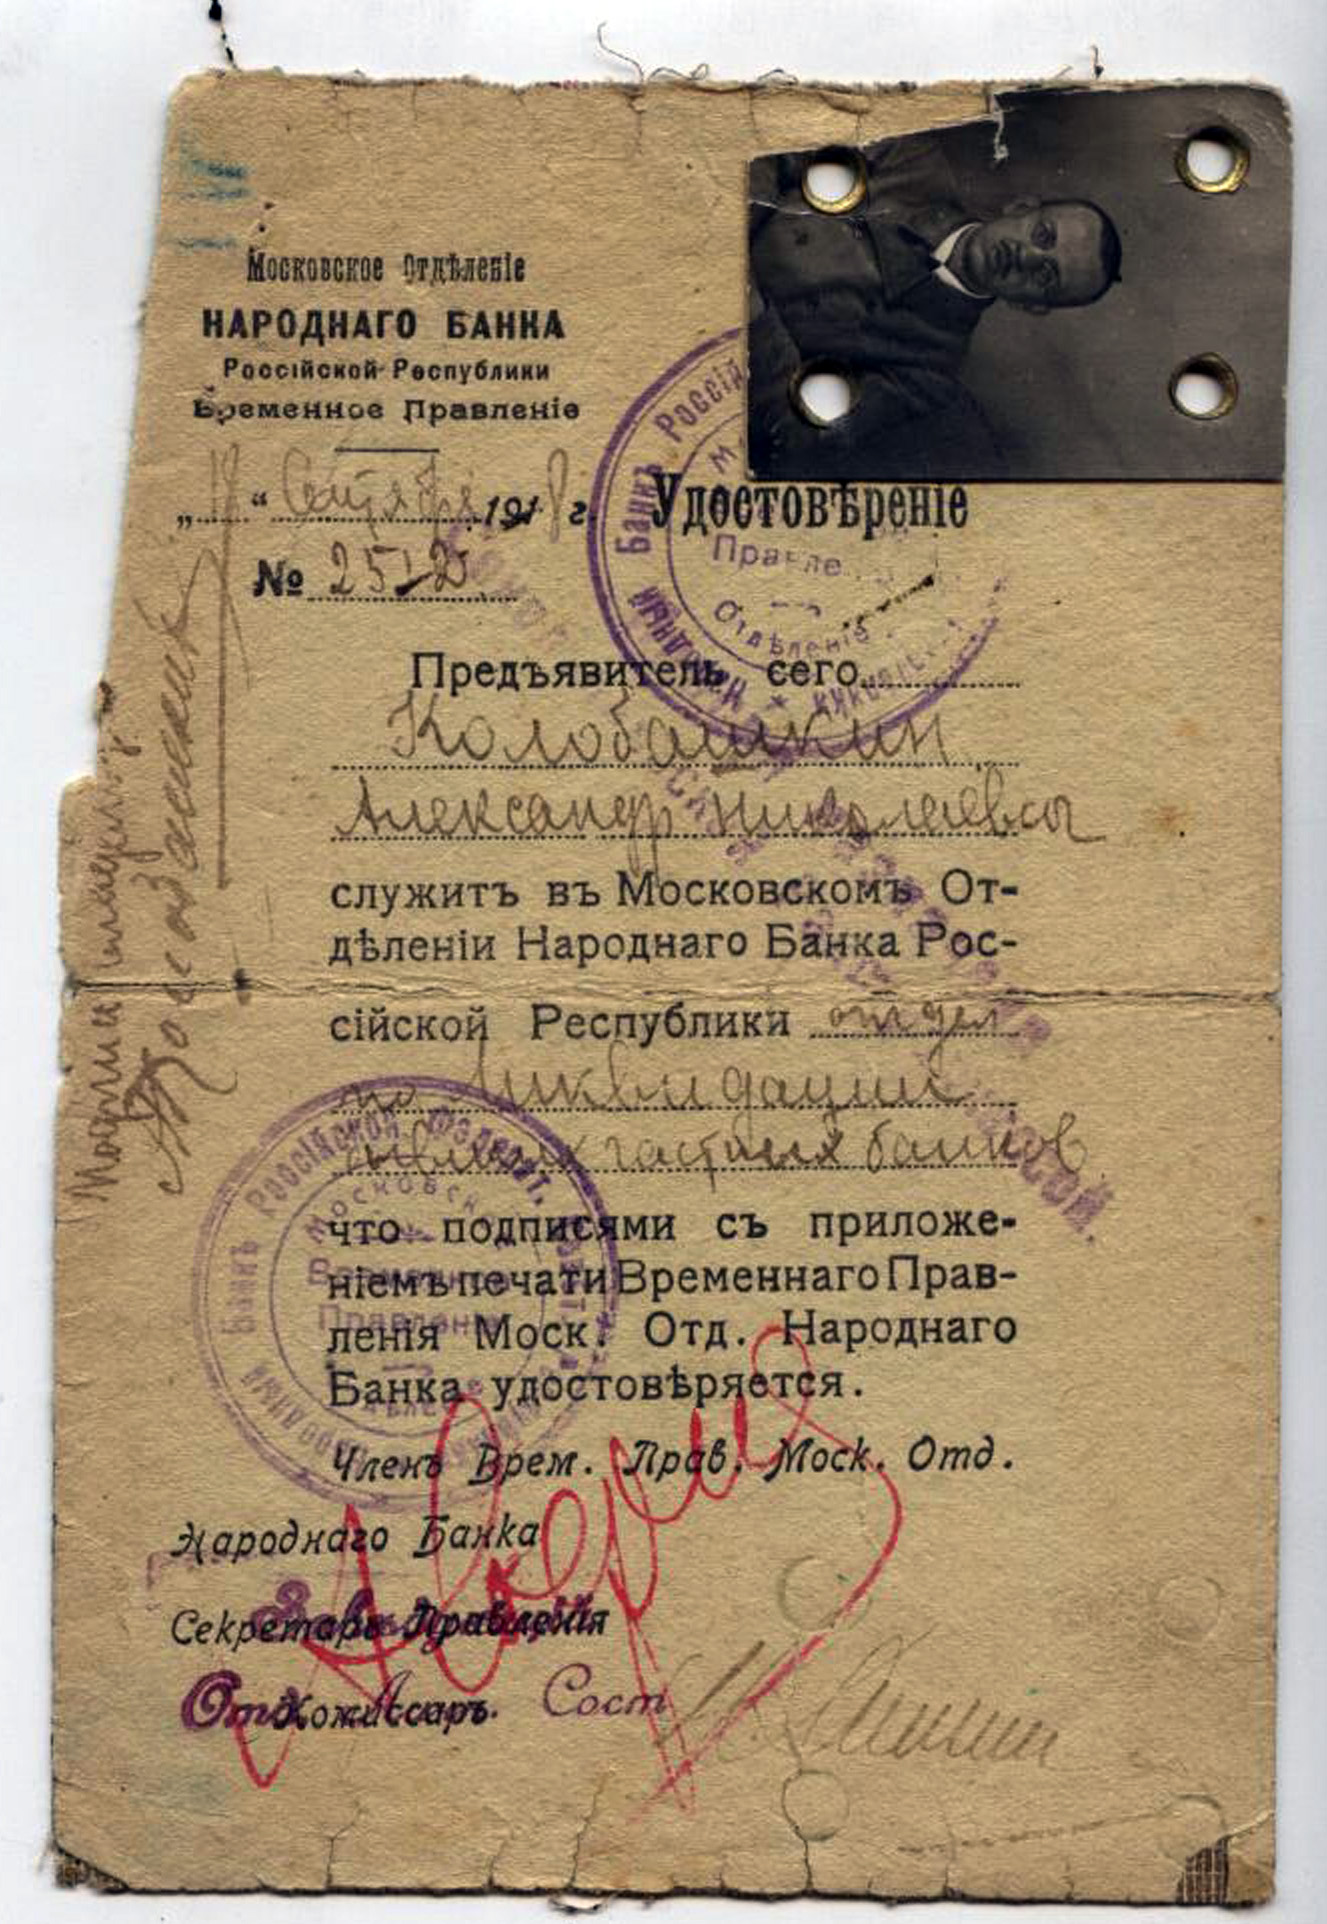 Московское Отдѣленіе
НАРОДНАГО БАНКА
Россійской Республики
Временное Правленіе
„ 17 “ Сентября 1918 г.
Удостовѣреніе
№ 2512
Предъявитель сего
Колобашкин
Александр Николаевич
служитъ въ Московскомъ От-
дѣленіи Народнаго Банка Рос-
сійской Республики отдел
по Ликвидации
бывших частных банков
что подписями съ приложе-
ніемъ печати Временнаго Прав-
ленія Моск. Отд. Народнаго
Банка удостовѣряется.
Членъ Врем. Прав. Моск. Отд.
Народнаго Банка
Секретарь Правленія
Комиссаръ.
Сост
Народный Банкъ Россій
Правле
Отдѣленіе
Народный Банкъ Россійской Федерат.
Московск
Временное
Правленіе